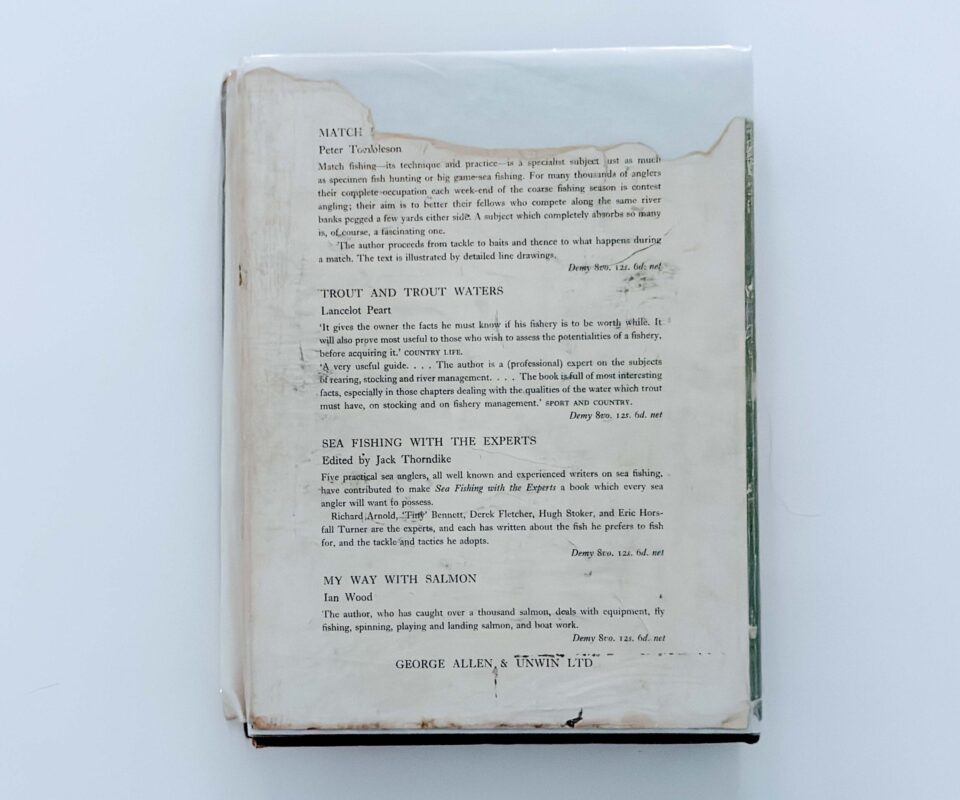 MATCH
Peter Tombleson
Match fishing—its technique and practice—is a specialist subject just as much
as specimen fish hunting or big game-sea fishing. For many thousands of anglers
their complete occupation each week-end of the coarse fishing season is contest
angling; their aim is to better their fellows who compete along the same river
banks pegged a few yards either side. A subject which completely absorbs so many
is, of course, a fascinating one.
The author proceeds from tackle to baits and thence to what happens during
a match. The text is illustrated by detailed line drawings.
Demy 8vo. 12s. 6d. net
TROUT AND TROUT WATERS
Lancelot Peart
'It gives the owner the facts he must know if his fishery is to be worth while. It
will also prove most useful to those who wish to assess the potentialities of a fishery,
before acquiring it.' COUNTRY LIFE.
'A very useful guide. . . . The author is a (professional) expert on the subjects
of rearing, stocking and river management. . . . The book is full of most interesting
facts, especially in those chapters dealing with the qualities of the water which trout
must have, on stocking and on fishery management.' SPORT AND COUNTRY.
Demy 8vo. 12s. 6d. net
SEA FISHING WITH THE EXPERTS
Edited by Jack Thorndike
Five practical sea anglers, all well known and experienced writers on sea fishing,
have contributed to make Sea Fishing with the Experts a book which every sea
angler will want to possess.
Richard Arnold, 'Tiny' Bennett, Derek Fletcher, Hugh Stoker, and Eric Hors-
fall Turner are the experts, and each has written about the fish he prefers to fish
for, and the tackle and tactics he adopts.
Demy 8vo. 12s. 6d. net
MY WAY WITH SALMON
Ian Wood
The author, who has caught over a thousand salmon, deals with equipment, fly
fishing, spinning, playing and landing salmon, and boat work.
Demy 8vo. 12s. 6d. net
GEORGE ALLEN & UNWIN LTD